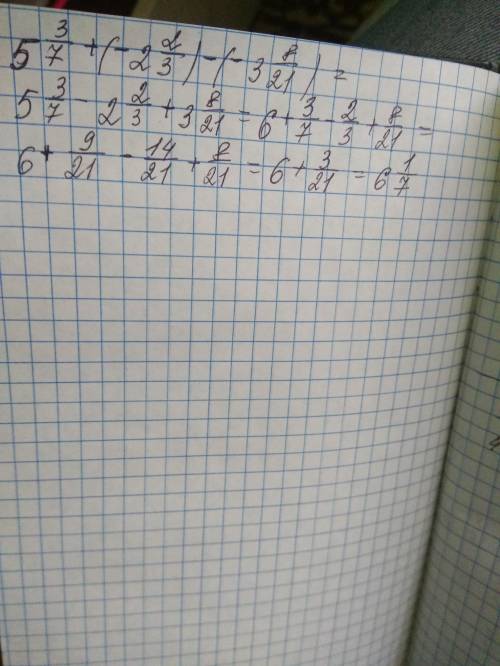 5 3/7 + (- 2 2/3) - (- 3 8/21) =
5 3/7 - 2 2/3 + 3 8/21 = 6 + 3/7 - 2/3 + 8/21 =
6 + 9/21 - 14/21 + 8/21 = 6 + 3/21 = 6 1/7